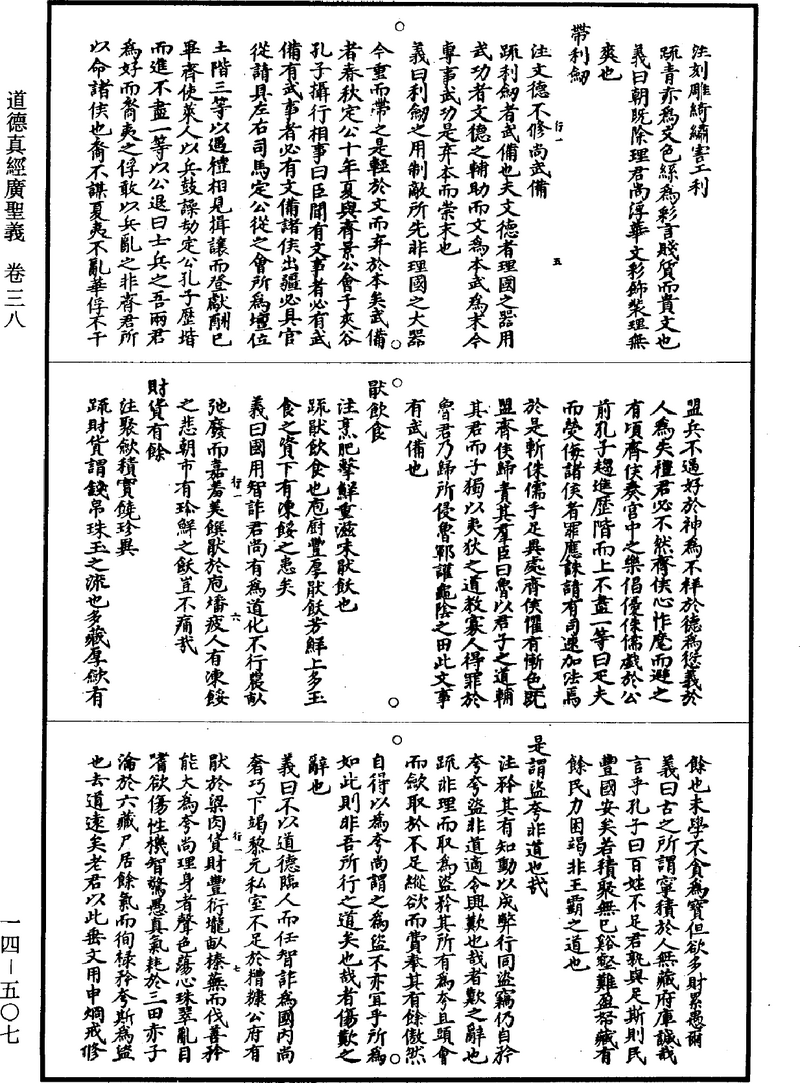 道德真經廣聖義　卷三八
注刻雕綺繡害工利
疏青赤為文色絲為彩言賤質而貴文也
義曰朝既除理君尚浮華文彩飾裝理無
爽也
帶利劒
注文德不修尚武備
疏利劒者武備也夫文德者理國之器用
武功者文德之輔助而文為本武為末今
專事武功是弃本而崇末也
義曰利劒之用制敵所先非理國之大器
今重而帶之是輕於文而弃於本矣武備
者春秋定公十年夏與齊景公會于夾谷
孔子攝行相事曰臣聞有文事者必有武
備有武事者必有文備諸侯出疆必具官
從請具左右司馬定公從之會所為壇位
土階三等以遇禮相見揖讓而登獻酬已
畢齊使萊人以兵鼓譟劫定公孔子歷堦
而進不盡一等以公退曰士兵之吾兩君
為好而裔夷之俘敢以兵亂之非齊君所
以命諸侯也裔不謀夏夷不亂華俘不干
盟兵不逼好於神為不祥於德為愆義於
人為失禮君必不然齊侯心怍麾而避之
有頃齊侯奏宮中之樂倡優侏儒戲於公
前孔子趨進歷階而上不盡一等曰疋夫
而熒侮諸侯者罪應誅請有司速加法焉
於是斬侏儒手足異處齊侯懼有慚色既
盟齊侯歸責其羣臣曰魯以君子之道輔
其君而子獨以夷狄之道教寡人得罪於
魯君乃歸所侵魯鄆讙龜陰之田此文事
有武備也
猒飲食
注烹肥擊鮮重滋味猒飫也
疏猒飲食也庖厨豐厚猒飫芳鮮上多玉
食之資下有凍餒之患矣
義曰國用智詐君尚有為道化不行農畝
弛廢而嘉肴美饌猒於庖墦疲人有凍餒
之悲朝市有珍鮮之飫豈不痛哉
財貨有餘
注聚歛積實饒珍異
疏財貨謂錢帛珠玉之流也多藏厚歛有
餘也未學不貪為寶但欲多財累愚爾
義曰古之所謂寧積於人無藏府庫誠哉
言乎孔子曰百姓不足君孰與足斯則民
豐國安矣若積聚無已谿壑難盈帑藏有
餘民力困竭非王霸之道也
是謂盜夸非道也哉
注矜其有知動以成弊行同盜竊仍自矜
夸夸盜非道適令興歎也哉者歎之辭也
疏非理而取為盜矜其所有為夸且頭會
而歛取於不足縱欲而賞奉其有餘傲然
自得以為夸尚謂之為盜不亦宜乎所為
如此則非吾所行之道矣也哉者傷歎之
辭也
義曰不以道德臨人而任智詐為國內尚
奢巧下竭黎元私室不足於糟糠公府有
猒於粱肉貨財豐衍壠畝榛蕪而伐善矜
能大為夸尚理身者聲色蕩心珠翠亂目
嗜欲傷性機智驚愚真氣耗於三田赤子
淪於六藏尸居餘氣而徇祿矜夸斯為盜
也去道遠矣老君以此垂文用申炯戒修
一四－五〇七